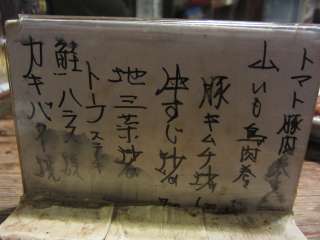 トマト豚肉巻
山いも鳥肉巻
豚キムチ炒
牛すじ炒
地三菜炒
トウステーキ
鮭ハラス焼
カキバター焼